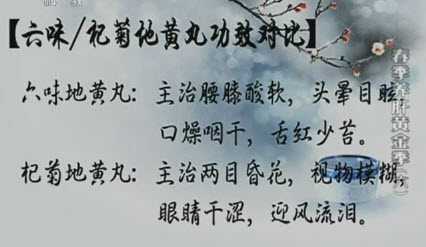 【六味/杞菊地黄丸功效对比】
六味地黄丸：主治腰膝酸软，头晕目眩
口燥咽干，舌红少苔。
杞菊地黄丸：主治两目昏花，视物模糊，
眼睛干涩，迎风流泪。
春季养肝黄金季